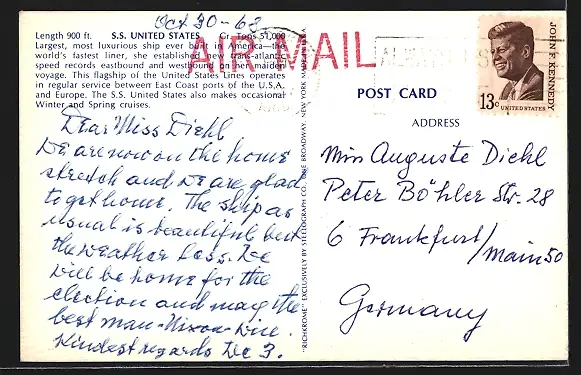 Oct 30-68
Length 900 ft. S.S. UNITED STATES Gr. Tons 51,000
Largest, most luxurious ship ever built in America—the
world's fastest liner, she established new trans-atlantic
speed records eastbound and westbound on her maiden
voyage. This flagship of the United States Lines operates
in regular service between East Coast ports of the U.S.A.
and Europe. The S.S. United States also makes occasional
Winter and Spring cruises.
AIR MAIL
Dear Miss Diehl
We are now on the home
stretch and we are glad
to get home. The ship as
usual is beautiful but
the weather less. We
will be home for the
election and may the
best man-Nixon-win.
Kindest regards We 3.
"RICHKROME" EXCLUSIVELY BY STELLOGRAPH CO. BROADWAY, NEW YORK
POST CARD
ADDRESS
JOHN F. KENNEDY
13c UNITED STATES
Miss Auguste Diehl
Peter Böhler Str. 28
6 Frankfurt/Main 50
Germany